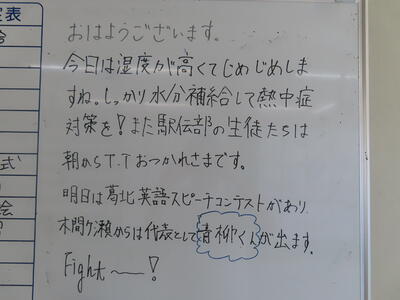 定表
おはようございます。
今日は湿度が高くてじめじめしま
すね。しっかり水分補給して熱中症
対策を!また駅伝部の生徒たちは
朝からT.Tおつかれさまです。
式
明日は葛北英語スピーチコンテストがあり
会
木間ケ瀬からは代表として青柳くんが出ます。
Fight〜!